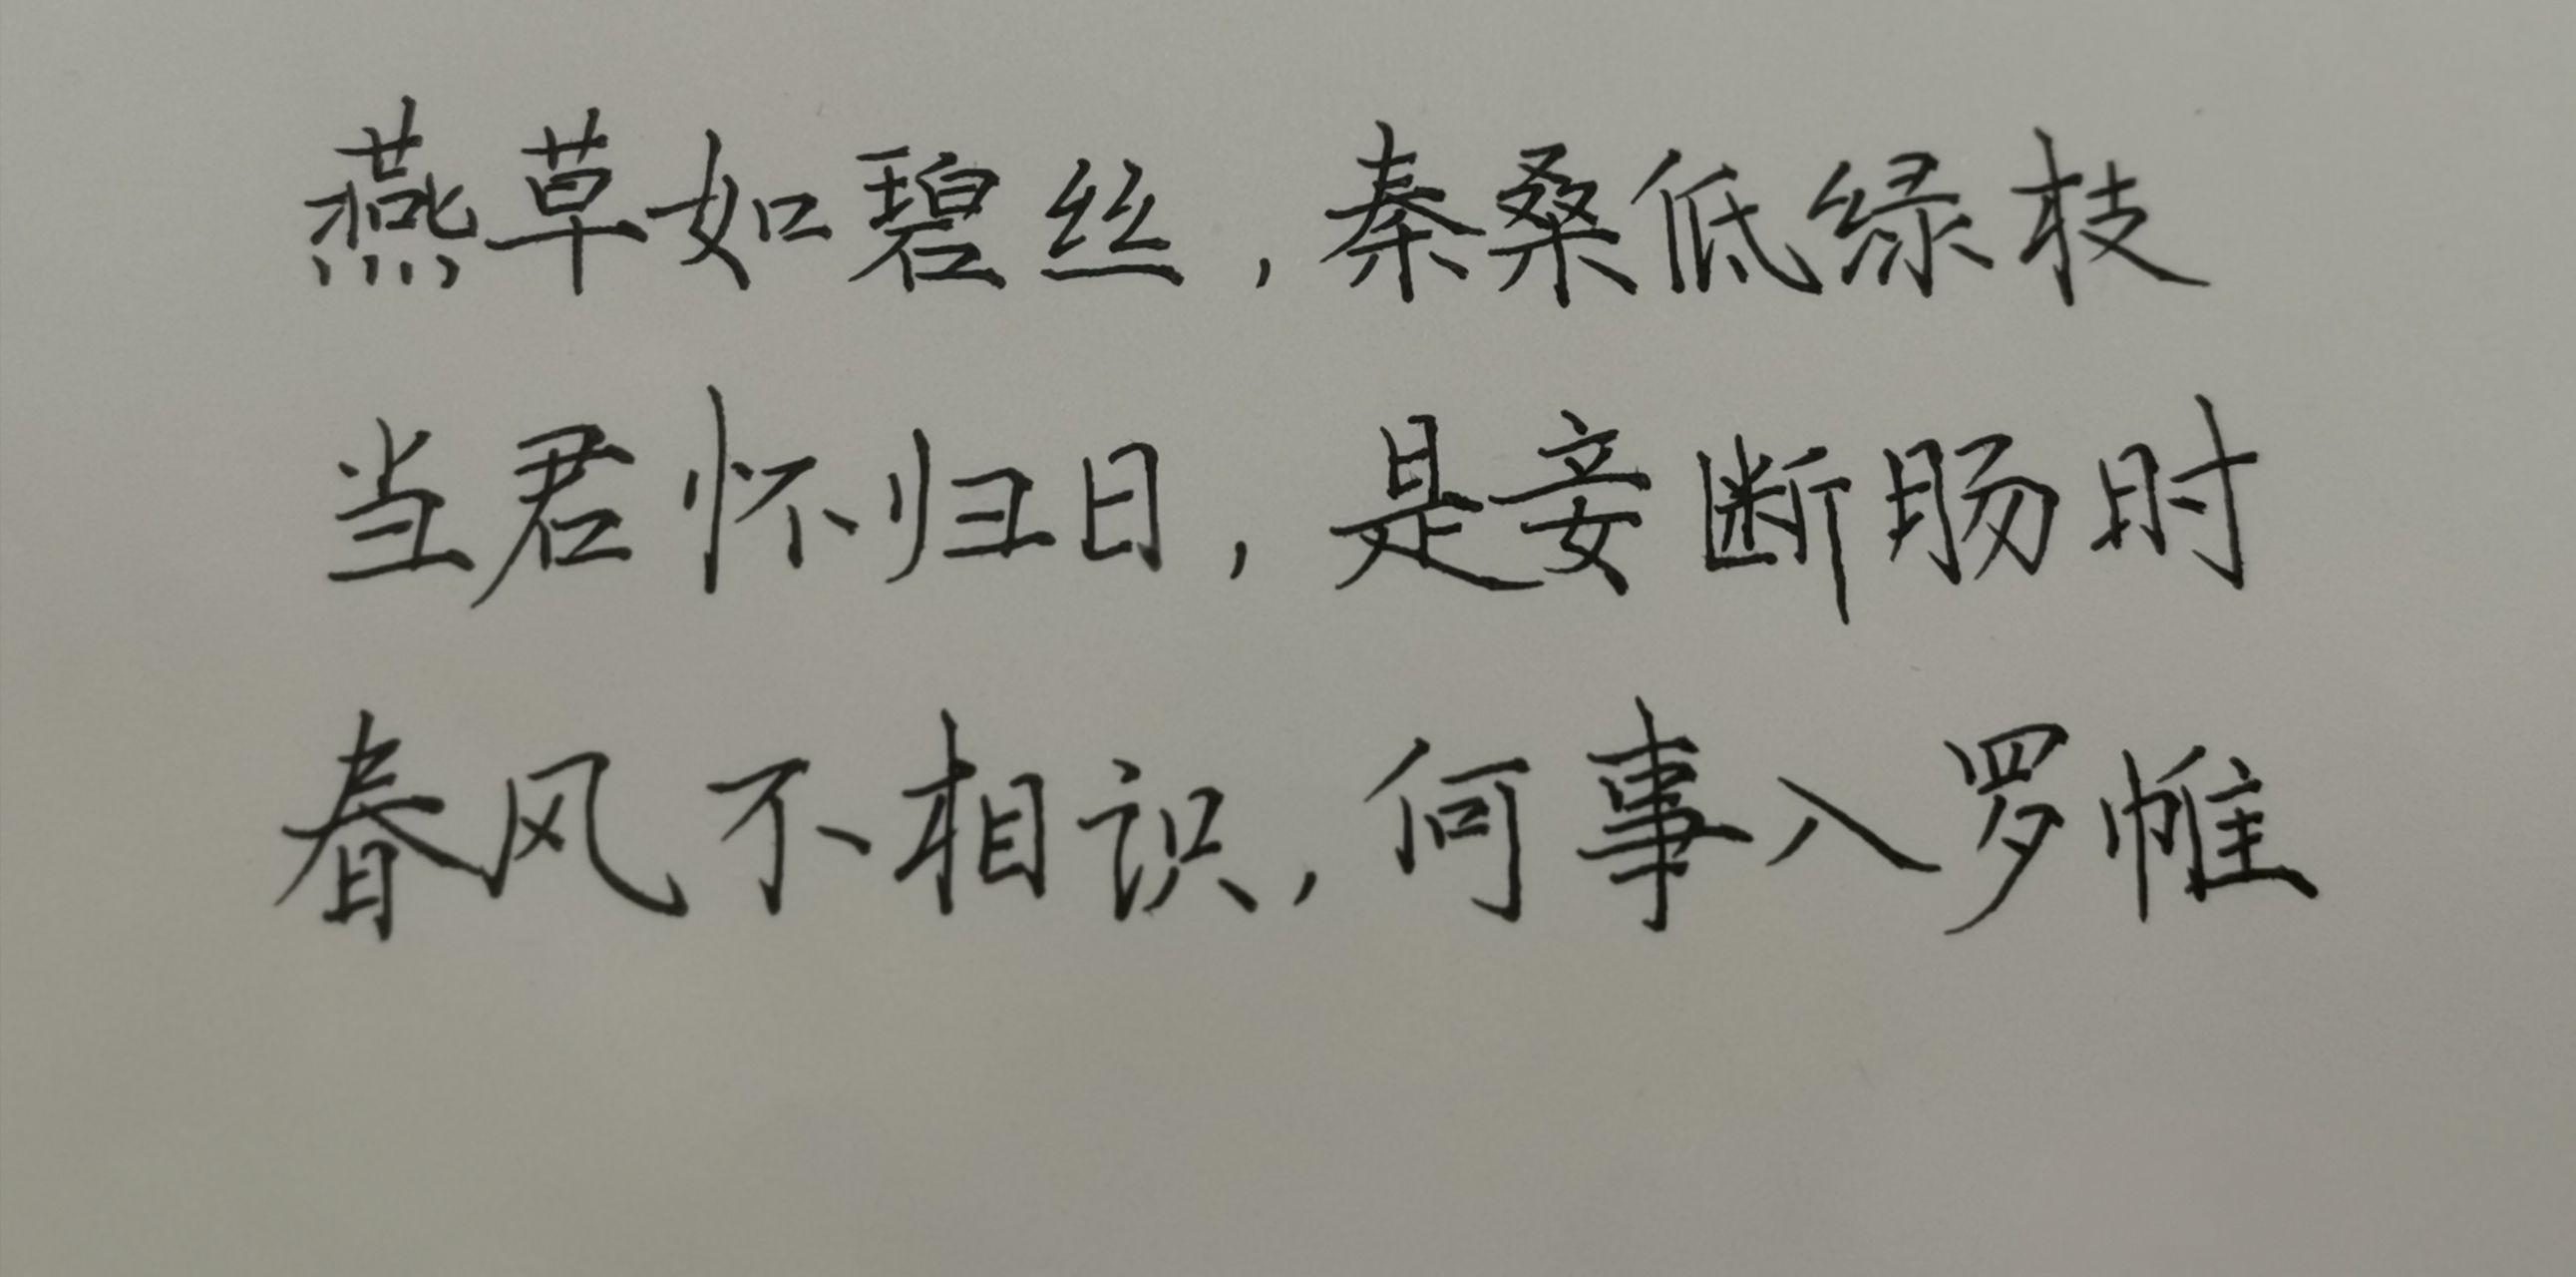 燕草如碧丝,秦桑低绿枝
当君怀归日,是妾断肠时
春风不相识,何事入罗帷